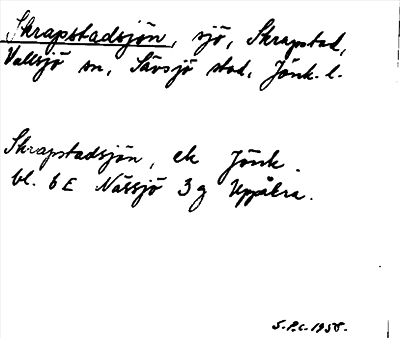 Skrapstadsjön, sjö, Skrapstad,
Vallsjö sn, Sävsjö stad, Jönk. l.
Skrapstadsjön, ek Jönk.
bl. 6 E Nässjö 3 g Uppåkra.
S.P.C. 1958.